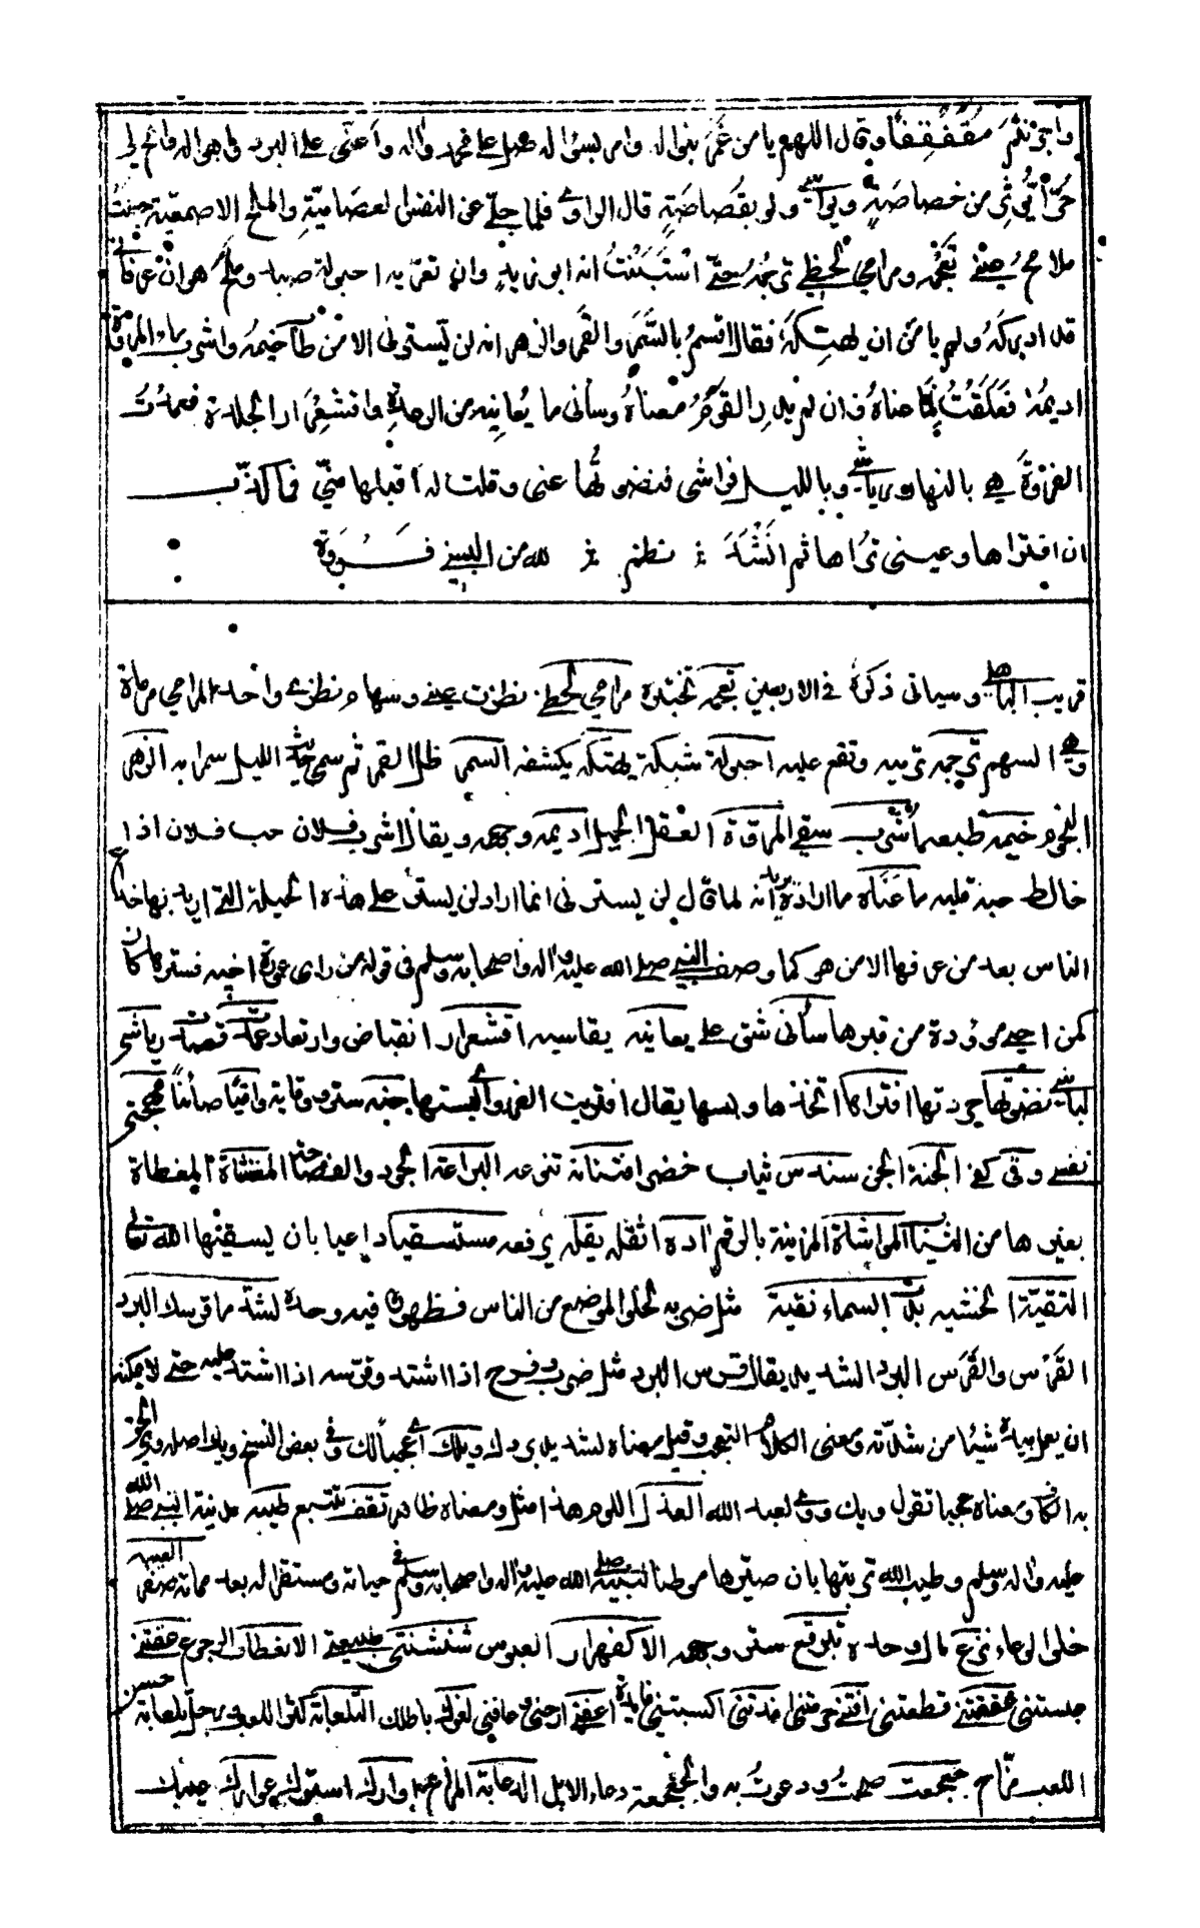 واجرنثم مقفقفا وقال اللهم يا من غمر بنواله وامر بسؤاله صل على محمد واله واعنى على البرد واهواله واتح لى
حرا يؤثر من خصاصة ويواسى ولو بقصاصة قال الراوى فلما جلى عن النفس العصامية والملح الاصمعية جعلت
ملامح عينى تعجمه ومرامى لحظى ترجمه حتى استبنت انه ابو زيد وان تعريه احبولة صيد ولمح هو ان عرفانى
قد ادركه ولم يامن ان يهتكه فقال اقسم بالسمر والقمر والزهر انه لن يسترنى الا من طاب خيمه واشرب ماء المروة
اديمه فعقلت ما عناه وان لم يدر القوم معناه وساءنى ما يعانيه من الرعدة واقشعرار الجلدة فعمدت
الفروة هى بالنهار رياشى وبالليل فراشى فنضوتها عنى وقلت له اقبلها منى فما كذب
ان افتراها وعينى تراها ثم انشد نظم لله من البسنى فروة
قريب وسياتى ذكره فى الاربعين تعجمه تختبره مرامى لحظى نظرت عينى وسهام نظرى واحد المرامى مرماة
وهى السهم ترجمه ترميه وتقع عليه احبولة شبكة يهتكه يكشفه السمر ظل القمر ثم سمى حديث الليل سمرا به الزهر
النجوم خيمه طبعه اشرب سقى المروة العقل الجميل اديمه وجهه ويقال اشرب فلان حب فلان اذا
خالط حبه قلبه ما عناه ما اراده يريد انه لما قال لن يسترنى انما اراد لن يستر على هذه الحيلة التى اريد بها خداع
الناس بعد من عرفها الا من هو كما وصف النبى صلى الله عليه واله واصحابه وسلم فى قوله من راى عورة اخيه فسترها كان
كمن احيى موؤدة من قبرها ساءنى شق على يعانيه يقاسيه اقشعرار انقباض وارتعاد عمدت قصدت رياشى
لباسى نضوتها جردتها افتراها اتخذها ولبسها يقال افتريت الفرو اى لبستها جنة سترة ووقاية واقيا صائنا مهجتى
نفسى وقى كفى الجنة الجن سندس ثياب خضر افتنانه تنوعه البراعة الجود والفصاحة المغشاة المغطاة
بغيرها من الثياب الموشاة المزينة بالرقم اده اثقله يقله يرفعه مستسقيا داعيا بان يسقيها الله تعالى
التقية الخشية السماء نقية مثل ضربه لخلو الموضع من الناس فظهوره فيه وحده لشدة ما قرسك البرد
القرس والقرس البرد الشديد يقال قرس البرد مثل ضرب وفرح اذا اشتد وقرسه اذا اشتد عليه حتى لا يمكنه
ان يعمل بيده شيئا من شدته ومعنى الكلام التعجب وقيل معناه لشد ما بردك ويلك اى عجبا لك وفى بعض النسخ ويك واصله وى الحق
به الكاف ومعناه عجبا تقول ويك ووى لعبد الله العذل اللوم هذا مثل ومعناه ظاهر تقف تتبع طيبة مدينة النبى صلى الله
عليه واله وسلم وطيب الله تربتها بان صيرها موطنا لنبيه صلى الله عليه واله واصحابه وسلم فى حياته ومستقرا له بعد مماته صفر العيبة
خلى الوعاء نزع مال وحده تبرقع ستر وجهه الاكفهرار العبوس شنشنتى طبيعتى الانعطاف الرجوع عقتنى
حبستنى عققتنى قطعتنى افتنى حرمتنى افدتنى اكسبتنى فايدة اعفنى ارحنى عافنى لغوك باطلك التلعابة كثير اللعب رجل تلعابة حسن
اللعب مزاح جعجعت صحت ودعوت به والجعجعة دعاء الابل الدعابة المزاح اوارك استرك عوارك عيبك